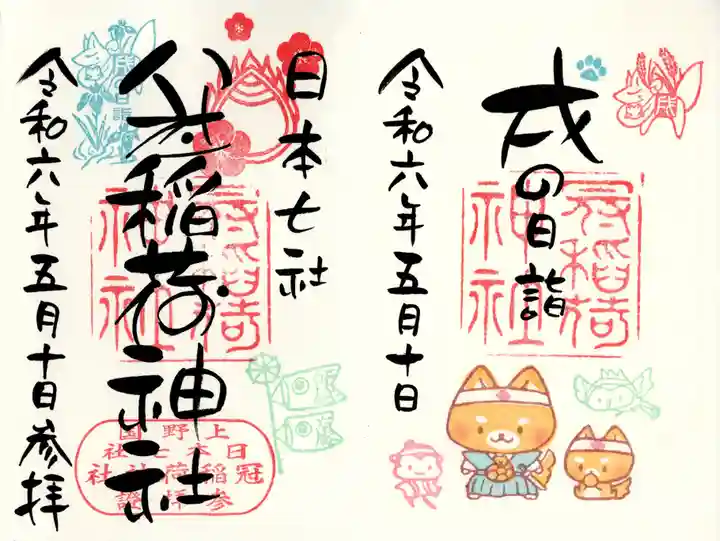 戌の日詣
令和六年五月十日
冠稲荷
神社
戌
日本七社
冠稲荷神社
令和六年五月十日参拝
冠稲荷
神社
戌の日詣
上野国
日本七社
冠稲荷神社
参拝證